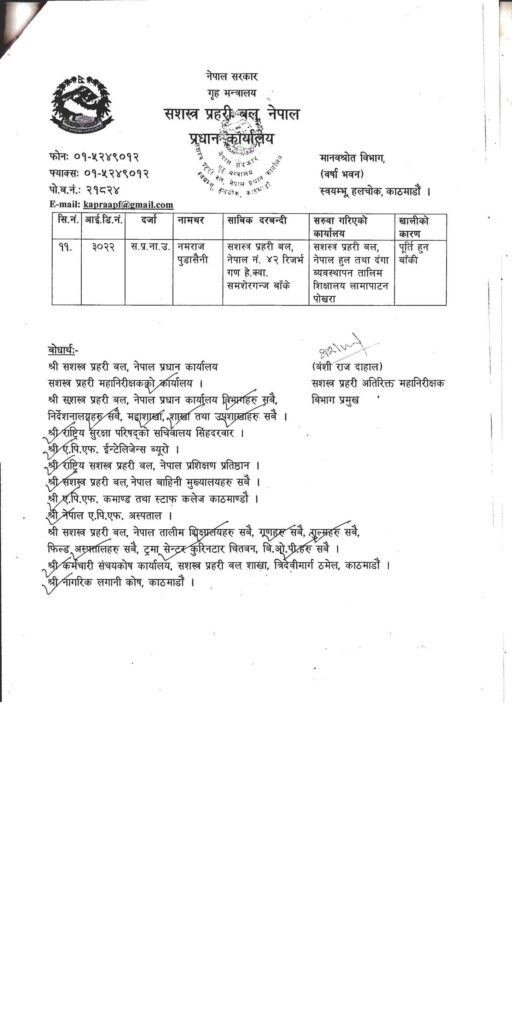 नेपाल सरकार
गृह मन्त्रालय
सशस्त्र प्रहरी बल, नेपाल
प्रधान कार्यालय
फोनः ०१-५२४९०१२
फ्याक्सः ०१-५२४९०१२
पो.व.नं.: २१८२४
E-mail: kapraapf@gmail.com
मानवश्रोत विभाग,
(वर्षा भवन)
स्वयम्भू, हलचोक, काठमाडौं ।
सि.नं. आई.डि.नं. दर्जा नामथर साविक दरबन्दी सरुवा गरिएको कार्यालय खालीको कारण
११. ३०२२ स.प्र.ना.उ. नमराज पुडासैनी सशस्त्र प्रहरी बल, नेपाल नं. ४२ रिजर्भ गण हे.क्वा. समशेरगन्ज बाँके सशस्त्र प्रहरी बल, नेपाल हुल तथा दंगा व्यवस्थापन तालिम शिक्षालय लामापाटन पोखरा पूर्ति हुन बाँकी
(बंशी राज दाहाल)
सशस्त्र प्रहरी अतिरिक्त महानिरीक्षक
विभाग प्रमुख
बोधार्थः-
श्री सशस्त्र प्रहरी बल, नेपाल प्रधान कार्यालय
सशस्त्र प्रहरी महानिरीक्षकको कार्यालय ।
श्री सशस्त्र प्रहरी बल, नेपाल प्रधान कार्यालय विभागहरु सबै,
निर्देशनालयहरु सबै, महाशाखा, शाखा तथा उपशाखाहरु सबै ।
श्री राष्ट्रिय सुरक्षा परिषद्को सचिवालय सिंहदरवार ।
श्री ए.पि.एफ. ईन्टेलिजेन्स ब्यूरो ।
श्री राष्ट्रिय सशस्त्र प्रहरी बल, नेपाल प्रशिक्षण प्रतिष्ठान ।
श्री सशस्त्र प्रहरी बल, नेपाल बाहिनी मुख्यालयहरु सबै ।
श्री ए.पि.एफ. कमाण्ड तथा स्टाफ कलेज काठमाण्डौ ।
श्री नेपाल ए.पि.एफ. अस्पताल ।
श्री सशस्त्र प्रहरी बल, नेपाल तालीम शिक्षालयहरु सबै, गणहरु सबै, गुल्महरु सबै,
फिल्ड अस्पतालहरु सबै, ट्रमा सेन्टर कुरिनटार चितवन, बि.ओ.पी.हरु सबै ।
श्री कर्मचारी संचयकोष कार्यालय, सशस्त्र प्रहरी बल शाखा, त्रिदेवीमार्ग ठमेल, काठमाडौं ।
श्री नागरिक लगानी कोष, काठमाडौं ।